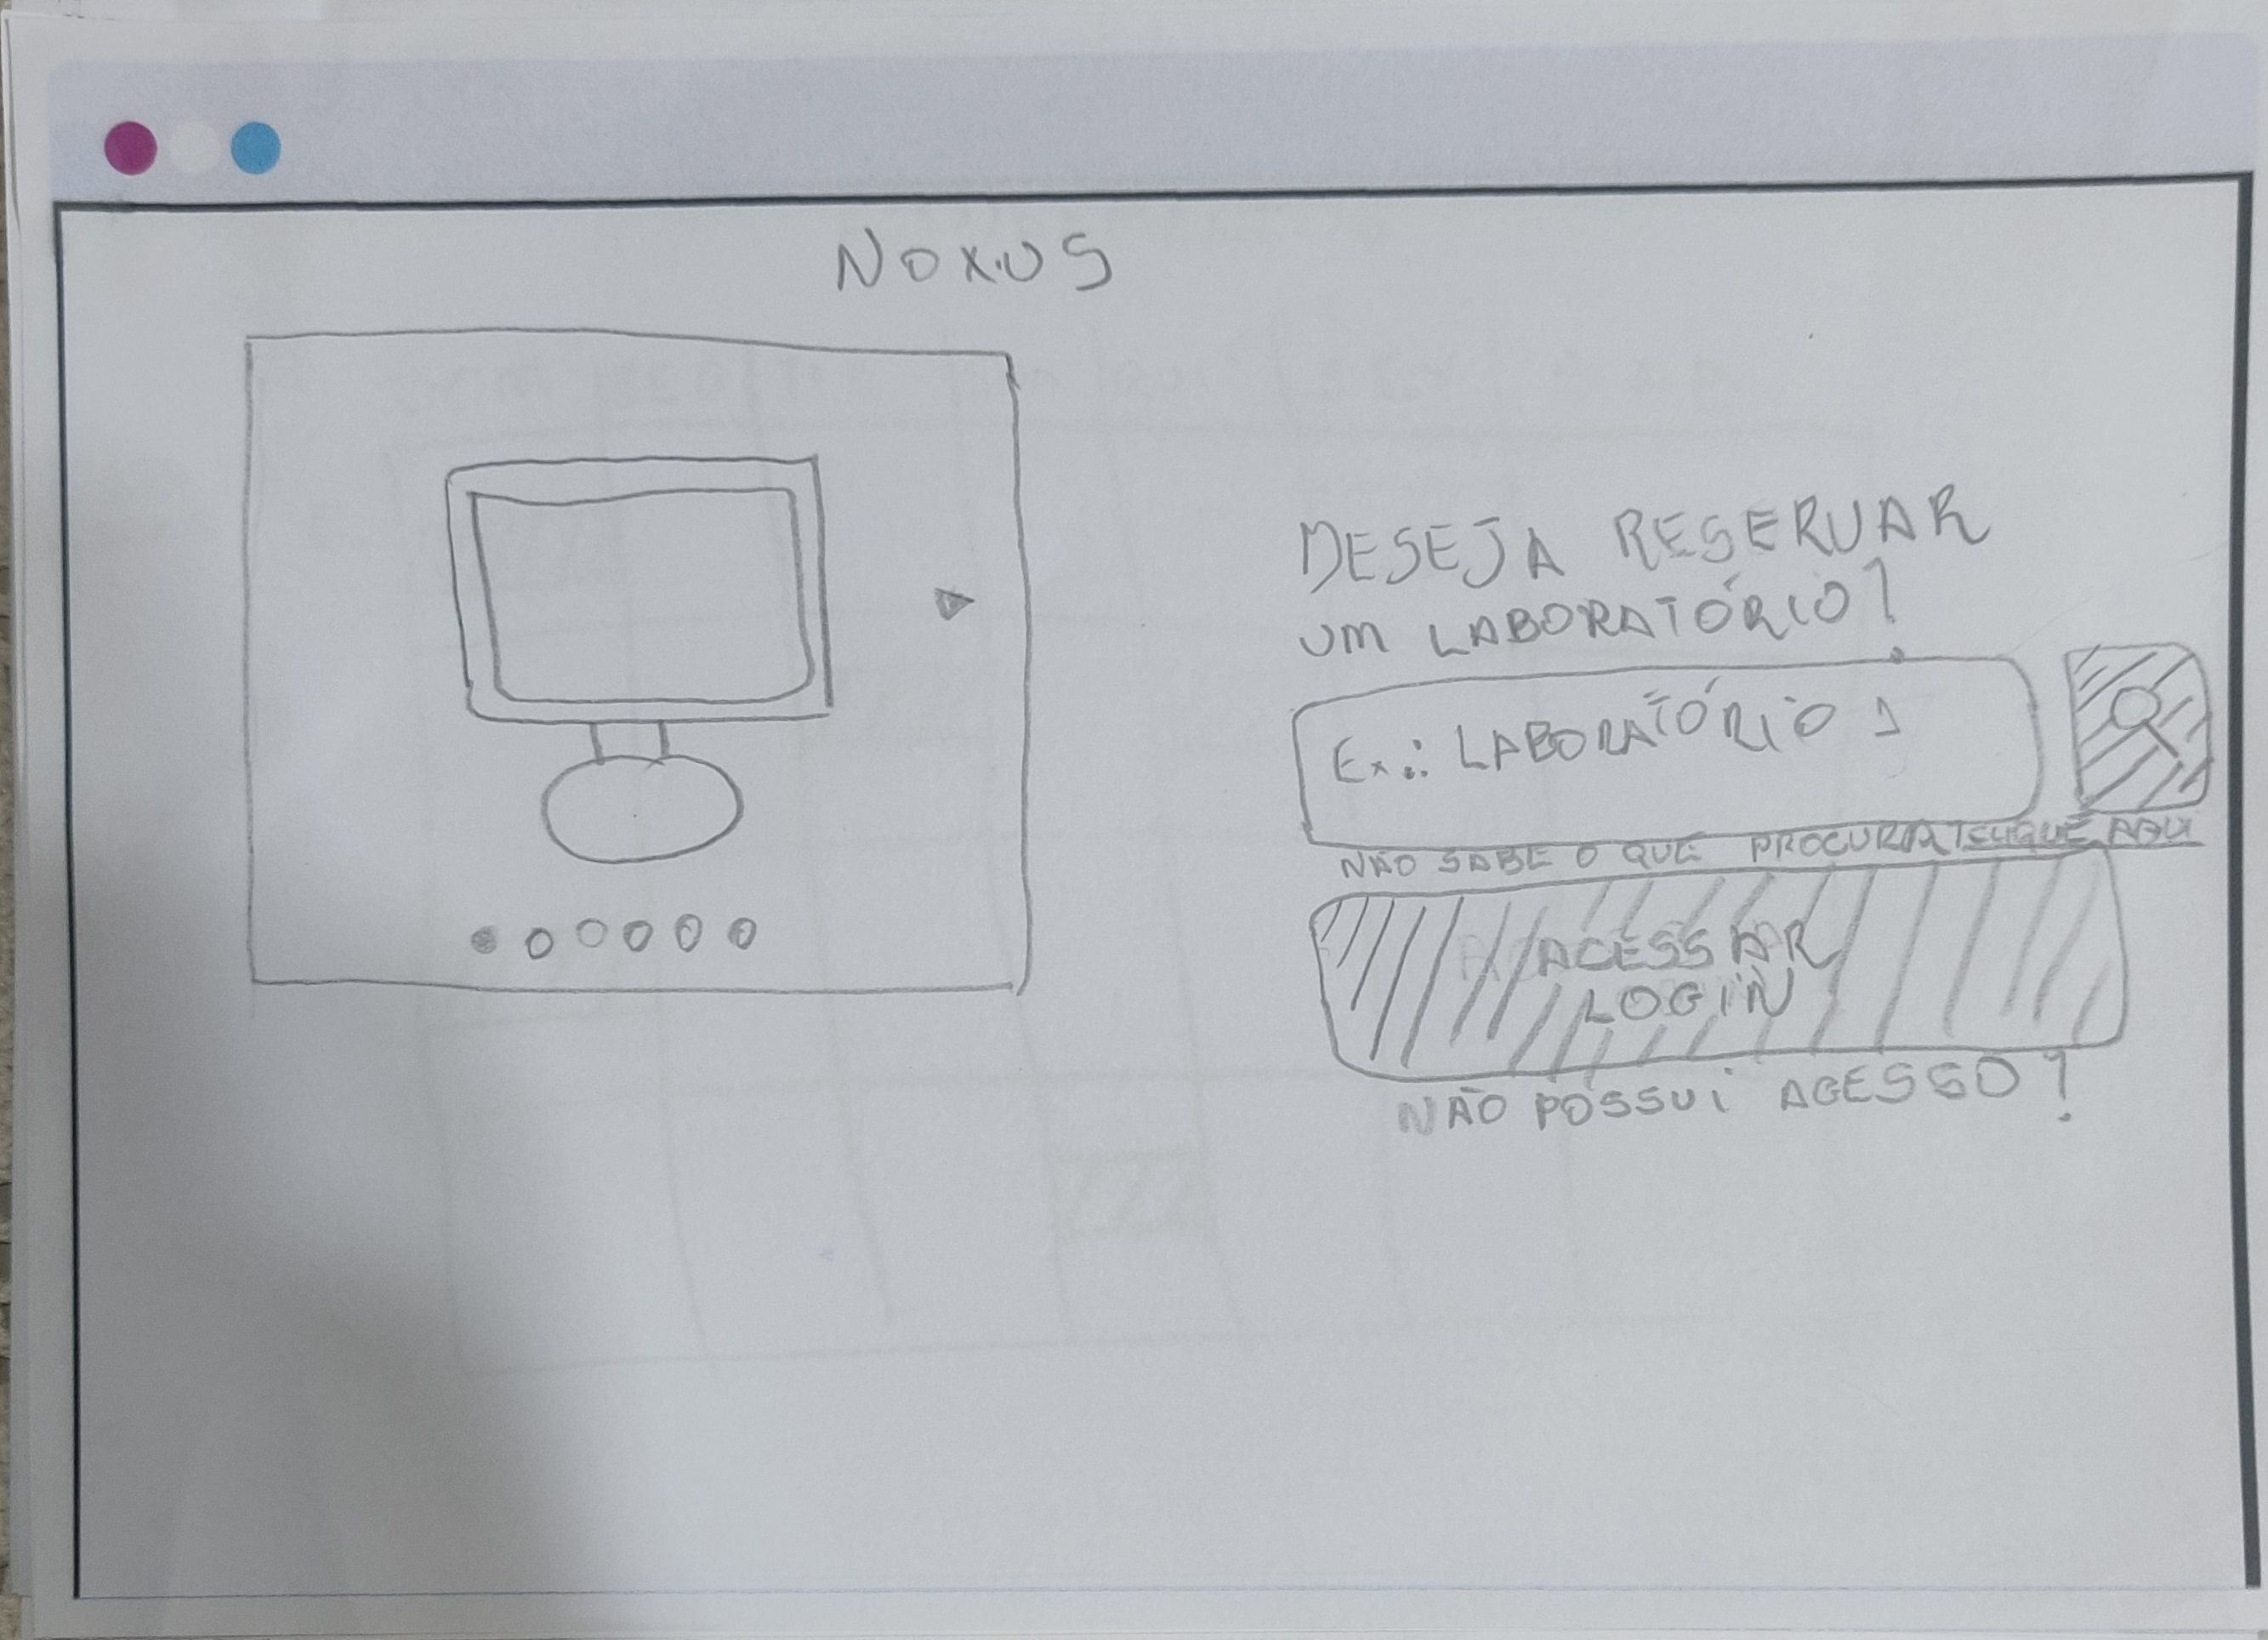 NOXUS
DESEJA RESERVAR
UM LABORATÓRIO?
Ex.: LABORATÓRIO 1
NÃO SABE O QUE PROCURA? CLIQUE AQUI
ACESSAR
LOGIN
NÃO POSSUI ACESSO?